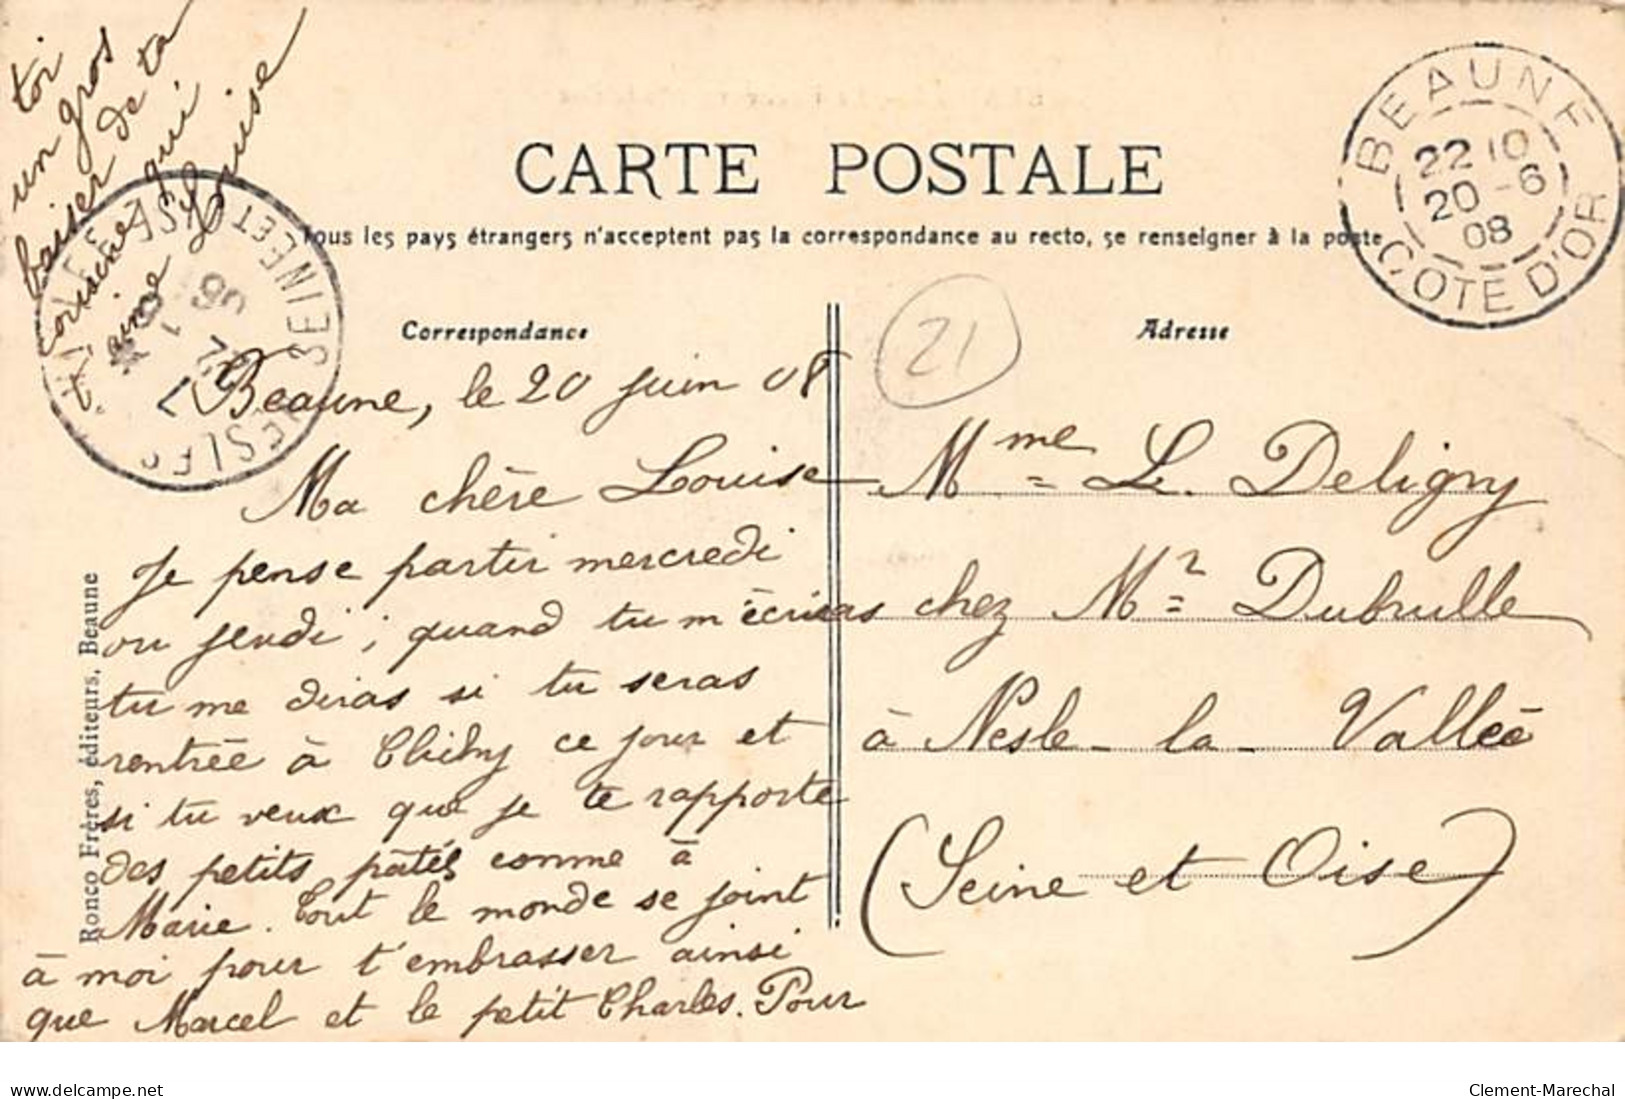 CARTE POSTALE
Tous les pays étrangers n'acceptent pas la correspondance au recto, se renseigner à la poste
Correspondance
Adresse
21
BEAUNE
22 10
20 - 6
08
COTE D'OR
SEINE ET OISE
Beaune, le 20 juin 08
Ma chère Louise
Je pense partir mercredi
ou jeudi ; quand tu m'écriras
tu me diras si tu seras
rentrée à Clichy ce jour et
si tu veux que je te rapporte
des petits patés comme à
Marie. Tout le monde se joint
à moi pour t'embrasser ainsi
que Marcel et le petit Charles. Pour
toi
un gros
baiser de ta
qui
t'aime Louise
Mme L. Deligny
chez Mr Dubrulle
à Nesle-la-Vallée
(Seine et Oise)
Ronco Frères, éditeurs, Beaune
www.delcampe.net
Clement-Marechal